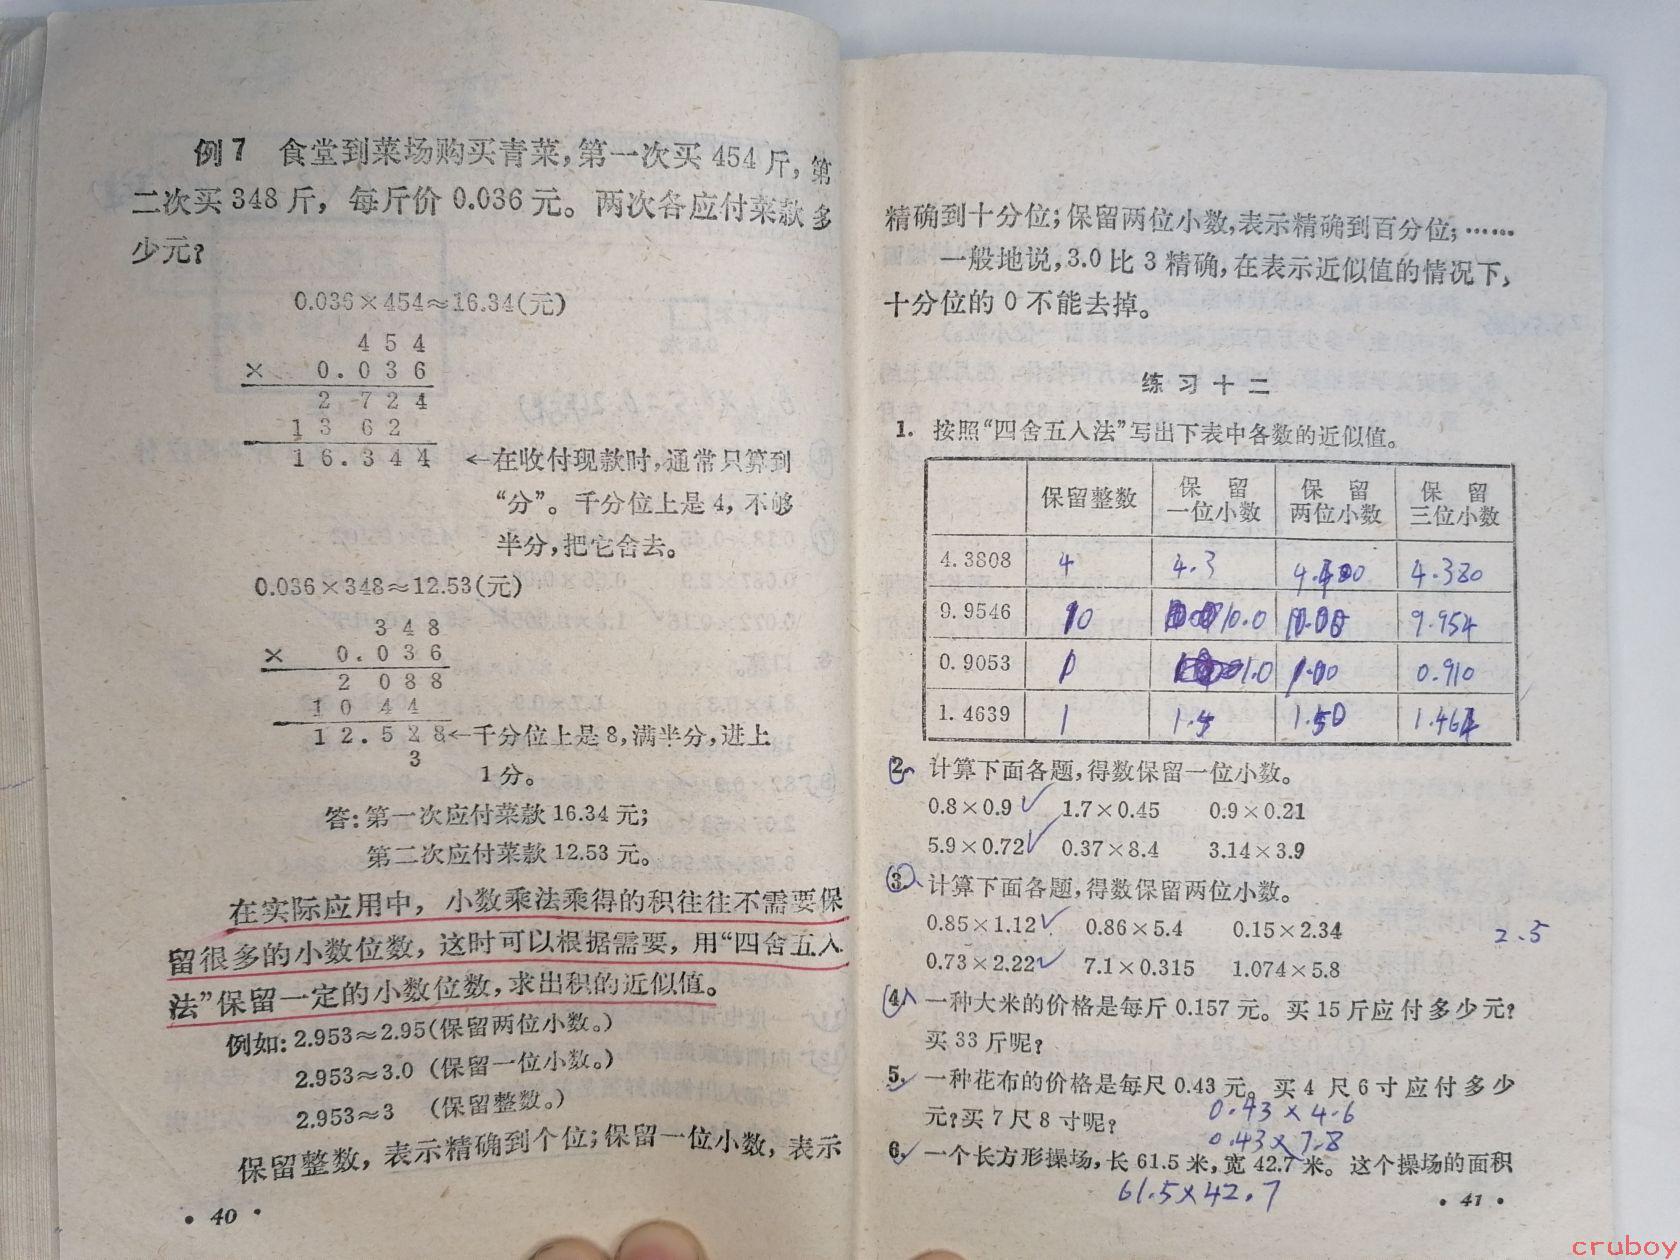 例7 食堂到菜场购买青菜,第一次买 454 斤,第
二次买 348 斤, 每斤价 0.036 元。两次各应付菜款多
少元?
0.036×454≈16.34(元)
454
× 0.036
2 724
13 62
16.344 ←在收付现款时,通常只算到
“分”。千分位上是4, 不够
半分,把它舍去。
0.036×348≈12.53(元)
348
× 0.036
2 088
10 44
12.528←千分位上是8,满半分,进上
3
1分。
答:第一次应付菜款 16.34 元;
第二次应付菜款 12.53 元。
在实际应用中, 小数乘法乘得的积往往不需要保
留很多的小数位数, 这时可以根据需要, 用“四舍五入
法”保留一定的小数位数,求出积的近似值。
例如: 2.953≈2.95(保留两位小数。)
2.953≈3.0 (保留一位小数。)
2.953≈3 (保留整数。)
保留整数, 表示精确到个位;保留一位小数, 表示
• 40 •
精确到十分位;保留两位小数,表示精确到百分位;……
一般地说,3.0 比 3 精确,在表示近似值的情况下,
十分位的 0 不能去掉。
练习十二
1. 按照“四舍五入法”写出下表中各数的近似值。
保留整数 保留一位小数 保留两位小数 保留三位小数
4.3808 4 4.3 4.380
9.9546 10 10.0 9.954
0.9053 1 1.0 1.00 0.910
1.4639 1 1.5 1.50 1.464
2. 计算下面各题,得数保留一位小数。
0.8×0.9 1.7×0.45 0.9×0.21
5.9×0.72 0.37×8.4 3.14×3.9
3. 计算下面各题,得数保留两位小数。
0.85×1.12 0.86×5.4 0.15×2.34
2.5
0.73×2.22 7.1×0.315 1.074×5.8
4. 一种大米的价格是每斤 0.157 元。买 15 斤应付多少元?
买 33 斤呢?
5. 一种花布的价格是每尺 0.43 元。买 4 尺 6 寸应付多少
0.43×4.6
元?买 7 尺 8 寸呢?
0.43×7.8
6. 一个长方形操场,长 61.5 米,宽 42.7 米。这个操场的面积
61.5×42.7
• 41 •
cruboy